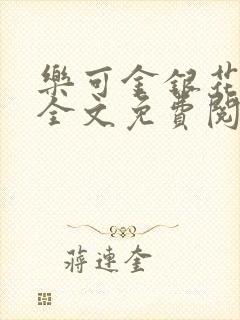 樂可金銀花
全文免費閱
蔣連奎